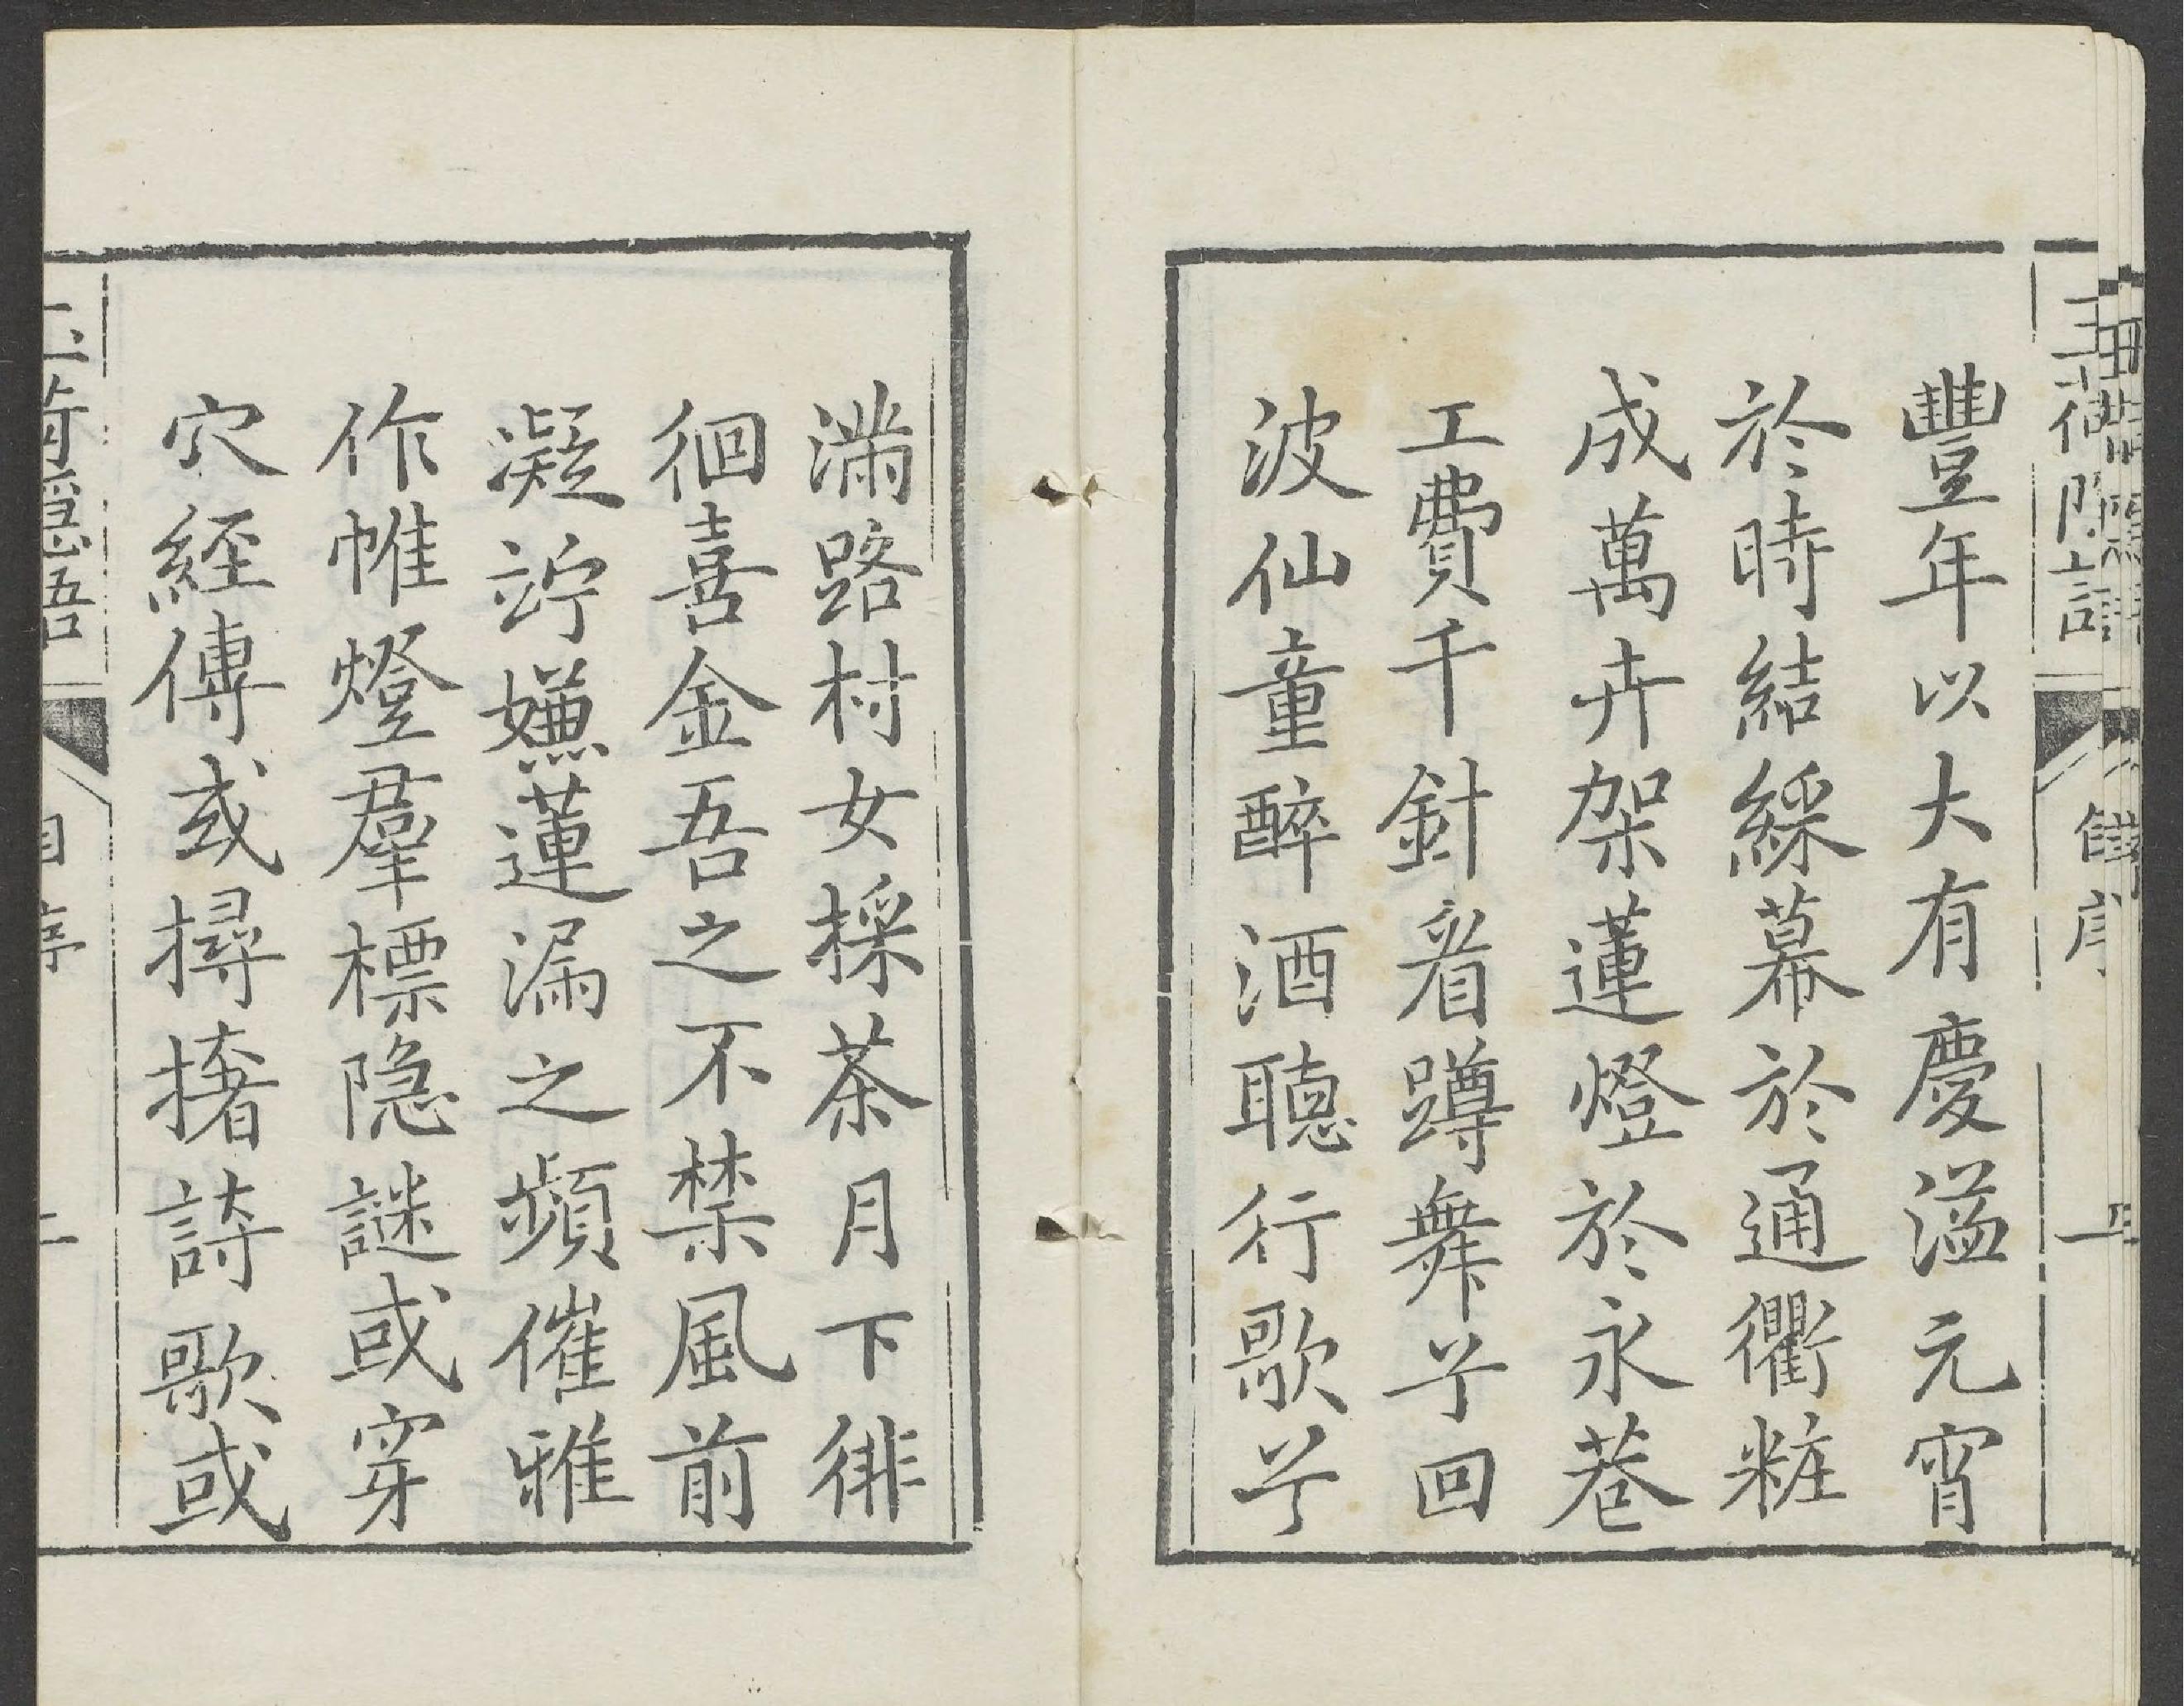 豐年以大有慶溢元宵
於時結綵幕於通衢粧
成萬卉架蓮燈於永巷
工費千針看蹲舞兮回
波仙童醉酒聽行歌兮
滿路村女採茶月下徘
徊喜金吾之不禁風前
凝竚嫌蓮漏之頻催雅
作帷燈羣標隐謎或穿
穴經傳或撏撦詩歌或